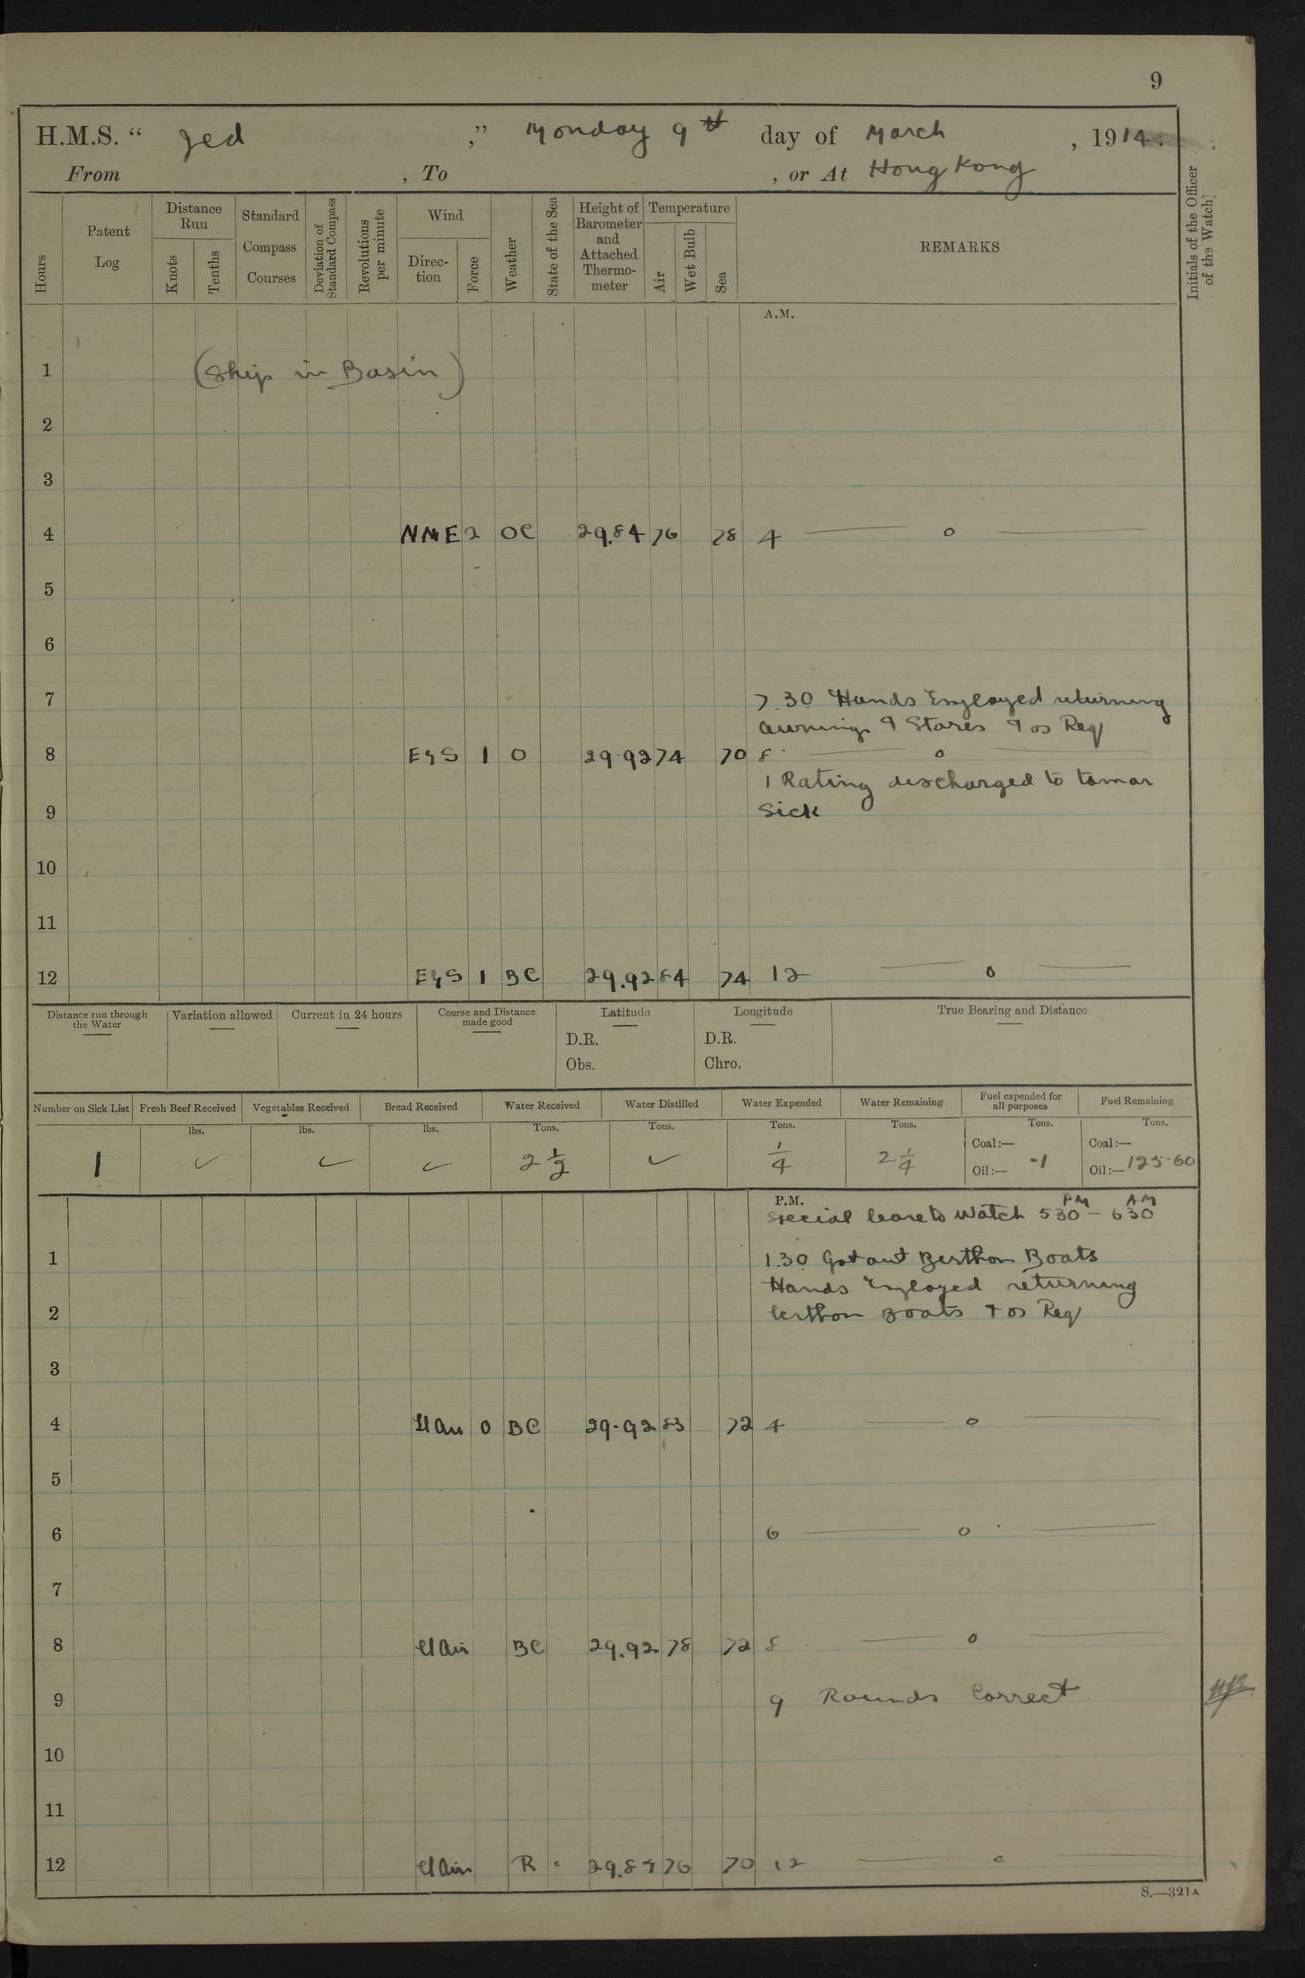 9
H.M.S. “ Jed ,” Monday 9th day of March , 1914.
From , To , or At Hong Kong
Hours
Patent Log
Distance Run
Knots
Tenths
Standard Compass Courses
Deviation of Standard Compass
Revolutions per minute
Wind
Direc-tion
Force
Weather
State of the Sea
Height of Barometer and Attached Thermo-meter
Temperature
Air
Wet Bulb
Sea
REMARKS
Initials of the Officer of the Watch]
A.M.
1 (Ship in Basin)
2
3
4 NNE 2 OC 29.84 76 78 4 — o —
5
6
7 7.30 Hands Employed returning
awnings & Stores & as Req
8 E & S 1 O 29.92 74 70 8 — o —
1 Rating discharged to tamar
9 Sick
10
11
12 E & S 1 BC 29.92 84 74 12 — o —
Distance run through the Water
Variation allowed
Current in 24 hours
Course and Distance made good
Latitude
D.R.
Obs.
Longitude
D.R.
Chro.
True Bearing and Distance
Number on Sick List
Fresh Beef Received
Vegetables Received
Bread Received
Water Received
Water Distilled
Water Expended
Water Remaining
Fuel expended for all purposes
Fuel Remaining
lbs. lbs. lbs. Tons. Tons. Tons. Tons. Tons. Tons.
1 ✓ ✓ ✓ 2 1/2 ✓ 1/4 2 1/4
Coal:— Coal:—
Oil:— ·1 Oil:— 125·60
P.M.
Special leave to Watch 530 PM – 630 AM
1 1.30 Got out Berthon Boats
Hands Employed returning
2 berthon Boats & as Req
3
4 0 BC 29.92 83 72 4 — o —
5
6 6 — o —
7
8 BC 29.92 78 72 8 — o —
9 9 Rounds Correct
10
11
12 R 76 70 12 — o —
S.—321A